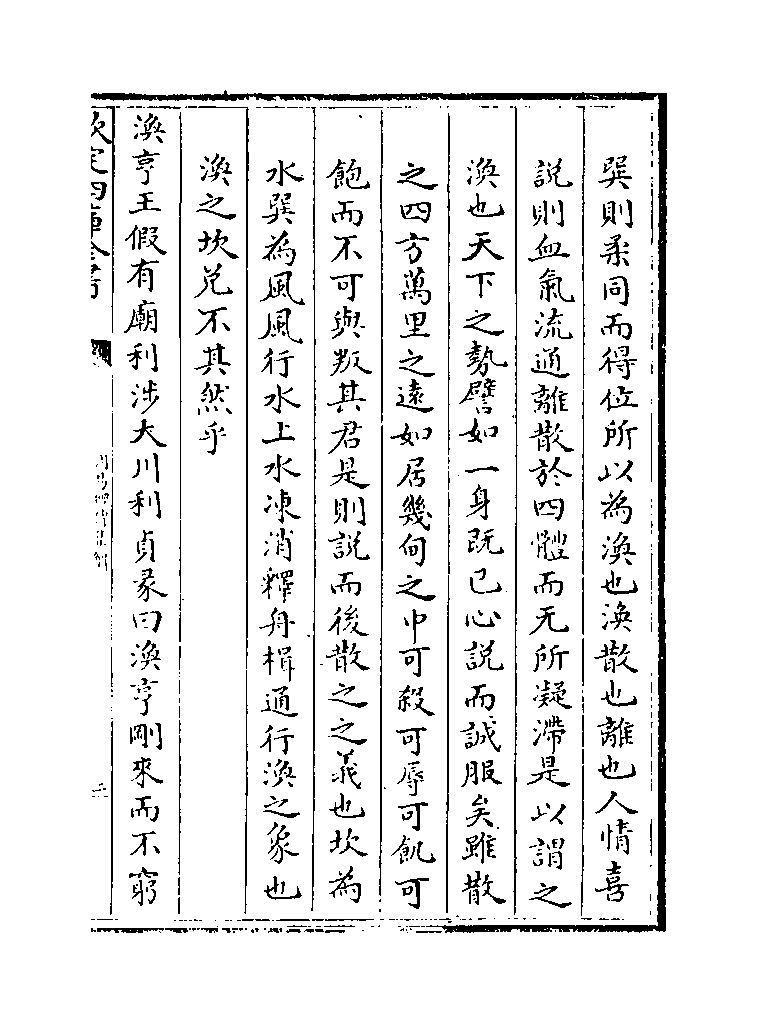 巽則柔同而得位所以為渙也渙散也離也人情喜
説則血氣流通離散於四體而无所凝滯是以謂之
渙也天下之勢譬如一身既已心説而誠服矣雖散
之四方萬里之遠如居幾甸之中可殺可辱可飢可
飽而不可與叛其君是則説而後散之之義也坎為
水巽為風風行水上水凍消釋舟楫通行渙之象也
渙之坎兑不其然乎
渙亨王假有廟利涉大川利貞彖曰渙亨剛來而不窮
欽定四庫全書